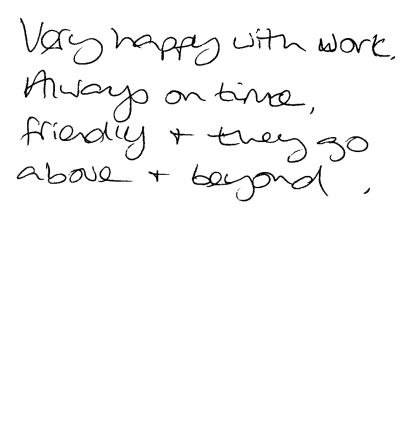 Very happy with work.
Always on time,
friendly + they go
above + beyond.